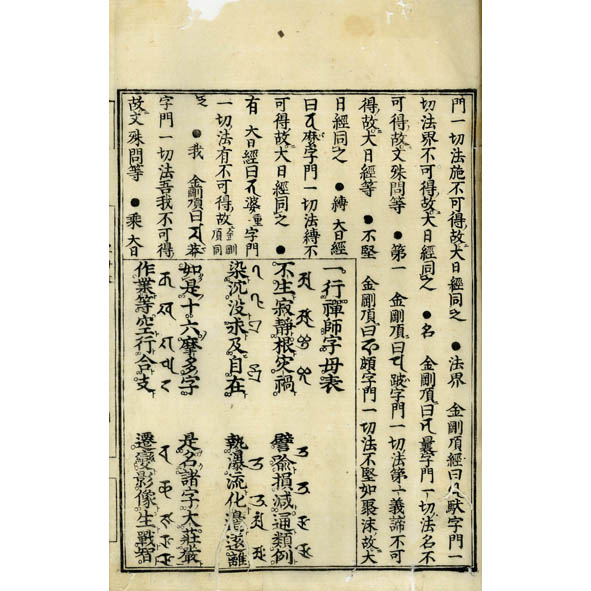 門一切法施不可得故大日經同之 ● 法界 金剛頂經曰馱字門一
切法界不可得故大日經同之 ● 名 金剛頂曰曩字門一切法名不
可得故文殊問等 ● 第一 金剛頂曰跛字門一切法第一義諦不可
得故大日經等 ● 不堅 金剛頂曰頗字門一切法不堅如聚沫故大
日經同之 ● 縛 大日經
曰麼字門一切法縛不
可得故大日經同之 ●
有 大日經曰婆重字門
一切法有不可得故金剛頂同
之 ● 我 金剛頂曰莽
字門一切法吾我不可得
故文殊問等 ● 乘 大日
一行禪師字母表
不生寂靜根災禍 譬喻損減通類例
染沉沒求及自在 執瀑流化邊遠離
如是十六摩多字 是名諸字大莊嚴
作業等空行合支 遷變影像生戰智